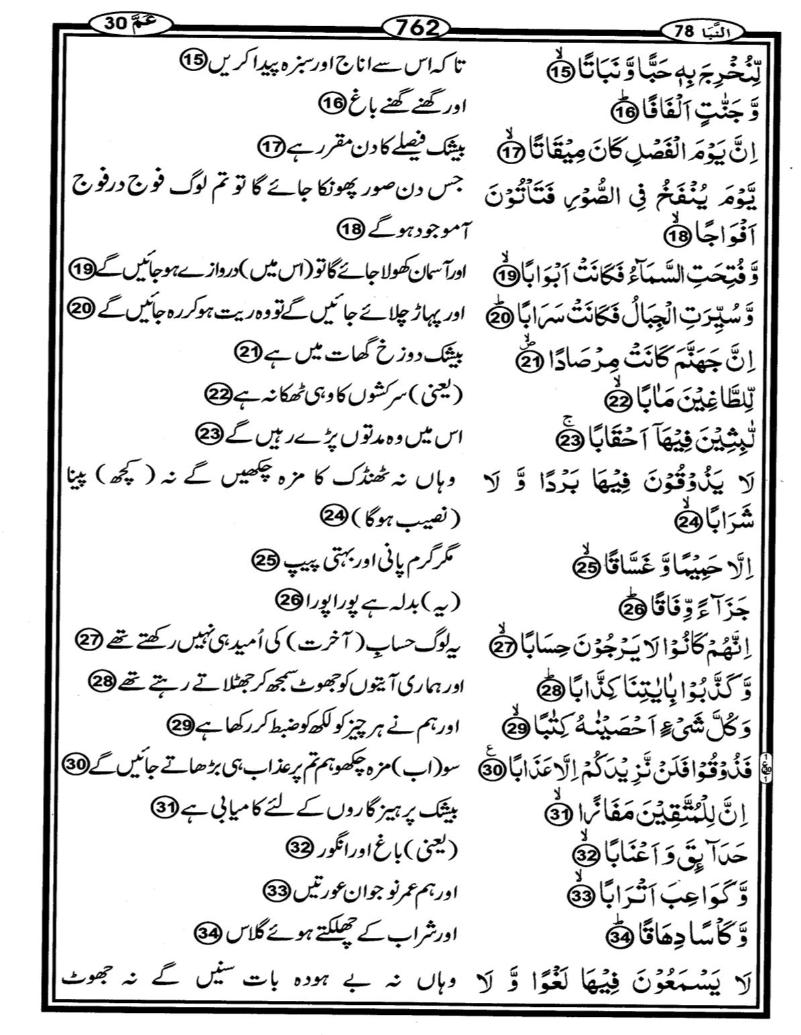 النَّبَا 78 762 عَمَّ 30
لِّنُخْرِجَ بِهٖ حَبًّا وَّ نَبَاتًا ⑮ تاکہ اس سے اناج اور سبزہ پیدا کریں ⑮
وَّ جَنّٰتٍ اَلْفَافًا ⑯ اور گھنے گھنے باغ ⑯
اِنَّ يَوْمَ الْفَصْلِ كَانَ مِيْقَاتًا ⑰ بیشک فیصلے کا دن مقرر ہے ⑰
يَّوْمَ يُنْفَخُ فِي الصُّوْرِ فَتَاْتُوْنَ جس دن صور پھونکا جائے گا تو تم لوگ فوج در فوج
اَفْوَاجًا ⑱ آموجود ہو گے ⑱
وَّ فُتِحَتِ السَّمَآءُ فَكَانَتْ اَبْوَابًا ⑲ اور آسمان کھولا جائے گا تو (اس میں) دروازے ہو جائیں گے ⑲
وَّ سُيِّرَتِ الْجِبَالُ فَكَانَتْ سَرَابًا ⑳ اور پہاڑ چلائے جائیں گے تو وہ ریت ہو کر رہ جائیں گے ⑳
اِنَّ جَهَنَّمَ كَانَتْ مِرْصَادًا ㉑ بیشک دوزخ گھات میں ہے ㉑
لِّلطَّاغِيْنَ مَاٰبًا ㉒ (یعنی) سرکشوں کا وہی ٹھکانہ ہے ㉒
لّٰبِثِيْنَ فِيْهَاۤ اَحْقَابًا ㉓ اس میں وہ مدتوں پڑے رہیں گے ㉓
لَا يَذُوْقُوْنَ فِيْهَا بَرْدًا وَّ لَا وہاں نہ ٹھنڈک کا مزہ چکھیں گے نہ (کچھ) پینا
شَرَابًا ㉔ (نصیب ہو گا) ㉔
اِلَّا حَمِيْمًا وَّ غَسَّاقًا ㉕ مگر گرم پانی اور بہتی پیپ ㉕
جَزَآءً وِّفَاقًا ㉖ (یہ) بدلہ ہے پورا پورا ㉖
اِنَّهُمْ كَانُوْا لَا يَرْجُوْنَ حِسَابًا ㉗ یہ لوگ حسابِ (آخرت) کی اُمید ہی نہیں رکھتے تھے ㉗
وَّ كَذَّبُوْا بِاٰيٰتِنَا كِذَّابًا ㉘ اور ہماری آیتوں کو جھوٹ سمجھ کر جھٹلاتے رہتے تھے ㉘
وَ كُلَّ شَيْءٍ اَحْصَيْنٰهُ كِتٰبًا ㉙ اور ہم نے ہر چیز کو لکھ کو ضبط کر رکھا ہے ㉙
فَذُوْقُوْا فَلَنْ نَّزِيْدَكُمْ اِلَّا عَذَابًا ㉚ سو (اب) مزہ چکھو ہم تم پر عذاب ہی بڑھاتے جائیں گے ㉚
اِنَّ لِلْمُتَّقِيْنَ مَفَازًا ㉛ بیشک پرہیزگاروں کے لئے کامیابی ہے ㉛
حَدَآئِقَ وَ اَعْنَابًا ㉜ (یعنی) باغ اور انگور ㉜
وَّ كَوَاعِبَ اَتْرَابًا ㉝ اور ہم عمر نوجوان عورتیں ㉝
وَّ كَاْسًا دِهَاقًا ㉞ اور شراب کے چھلکتے ہوئے گلاس ㉞
لَا يَسْمَعُوْنَ فِيْهَا لَغْوًا وَّ لَا وہاں نہ بے ہودہ بات سنیں گے نہ جھوٹ